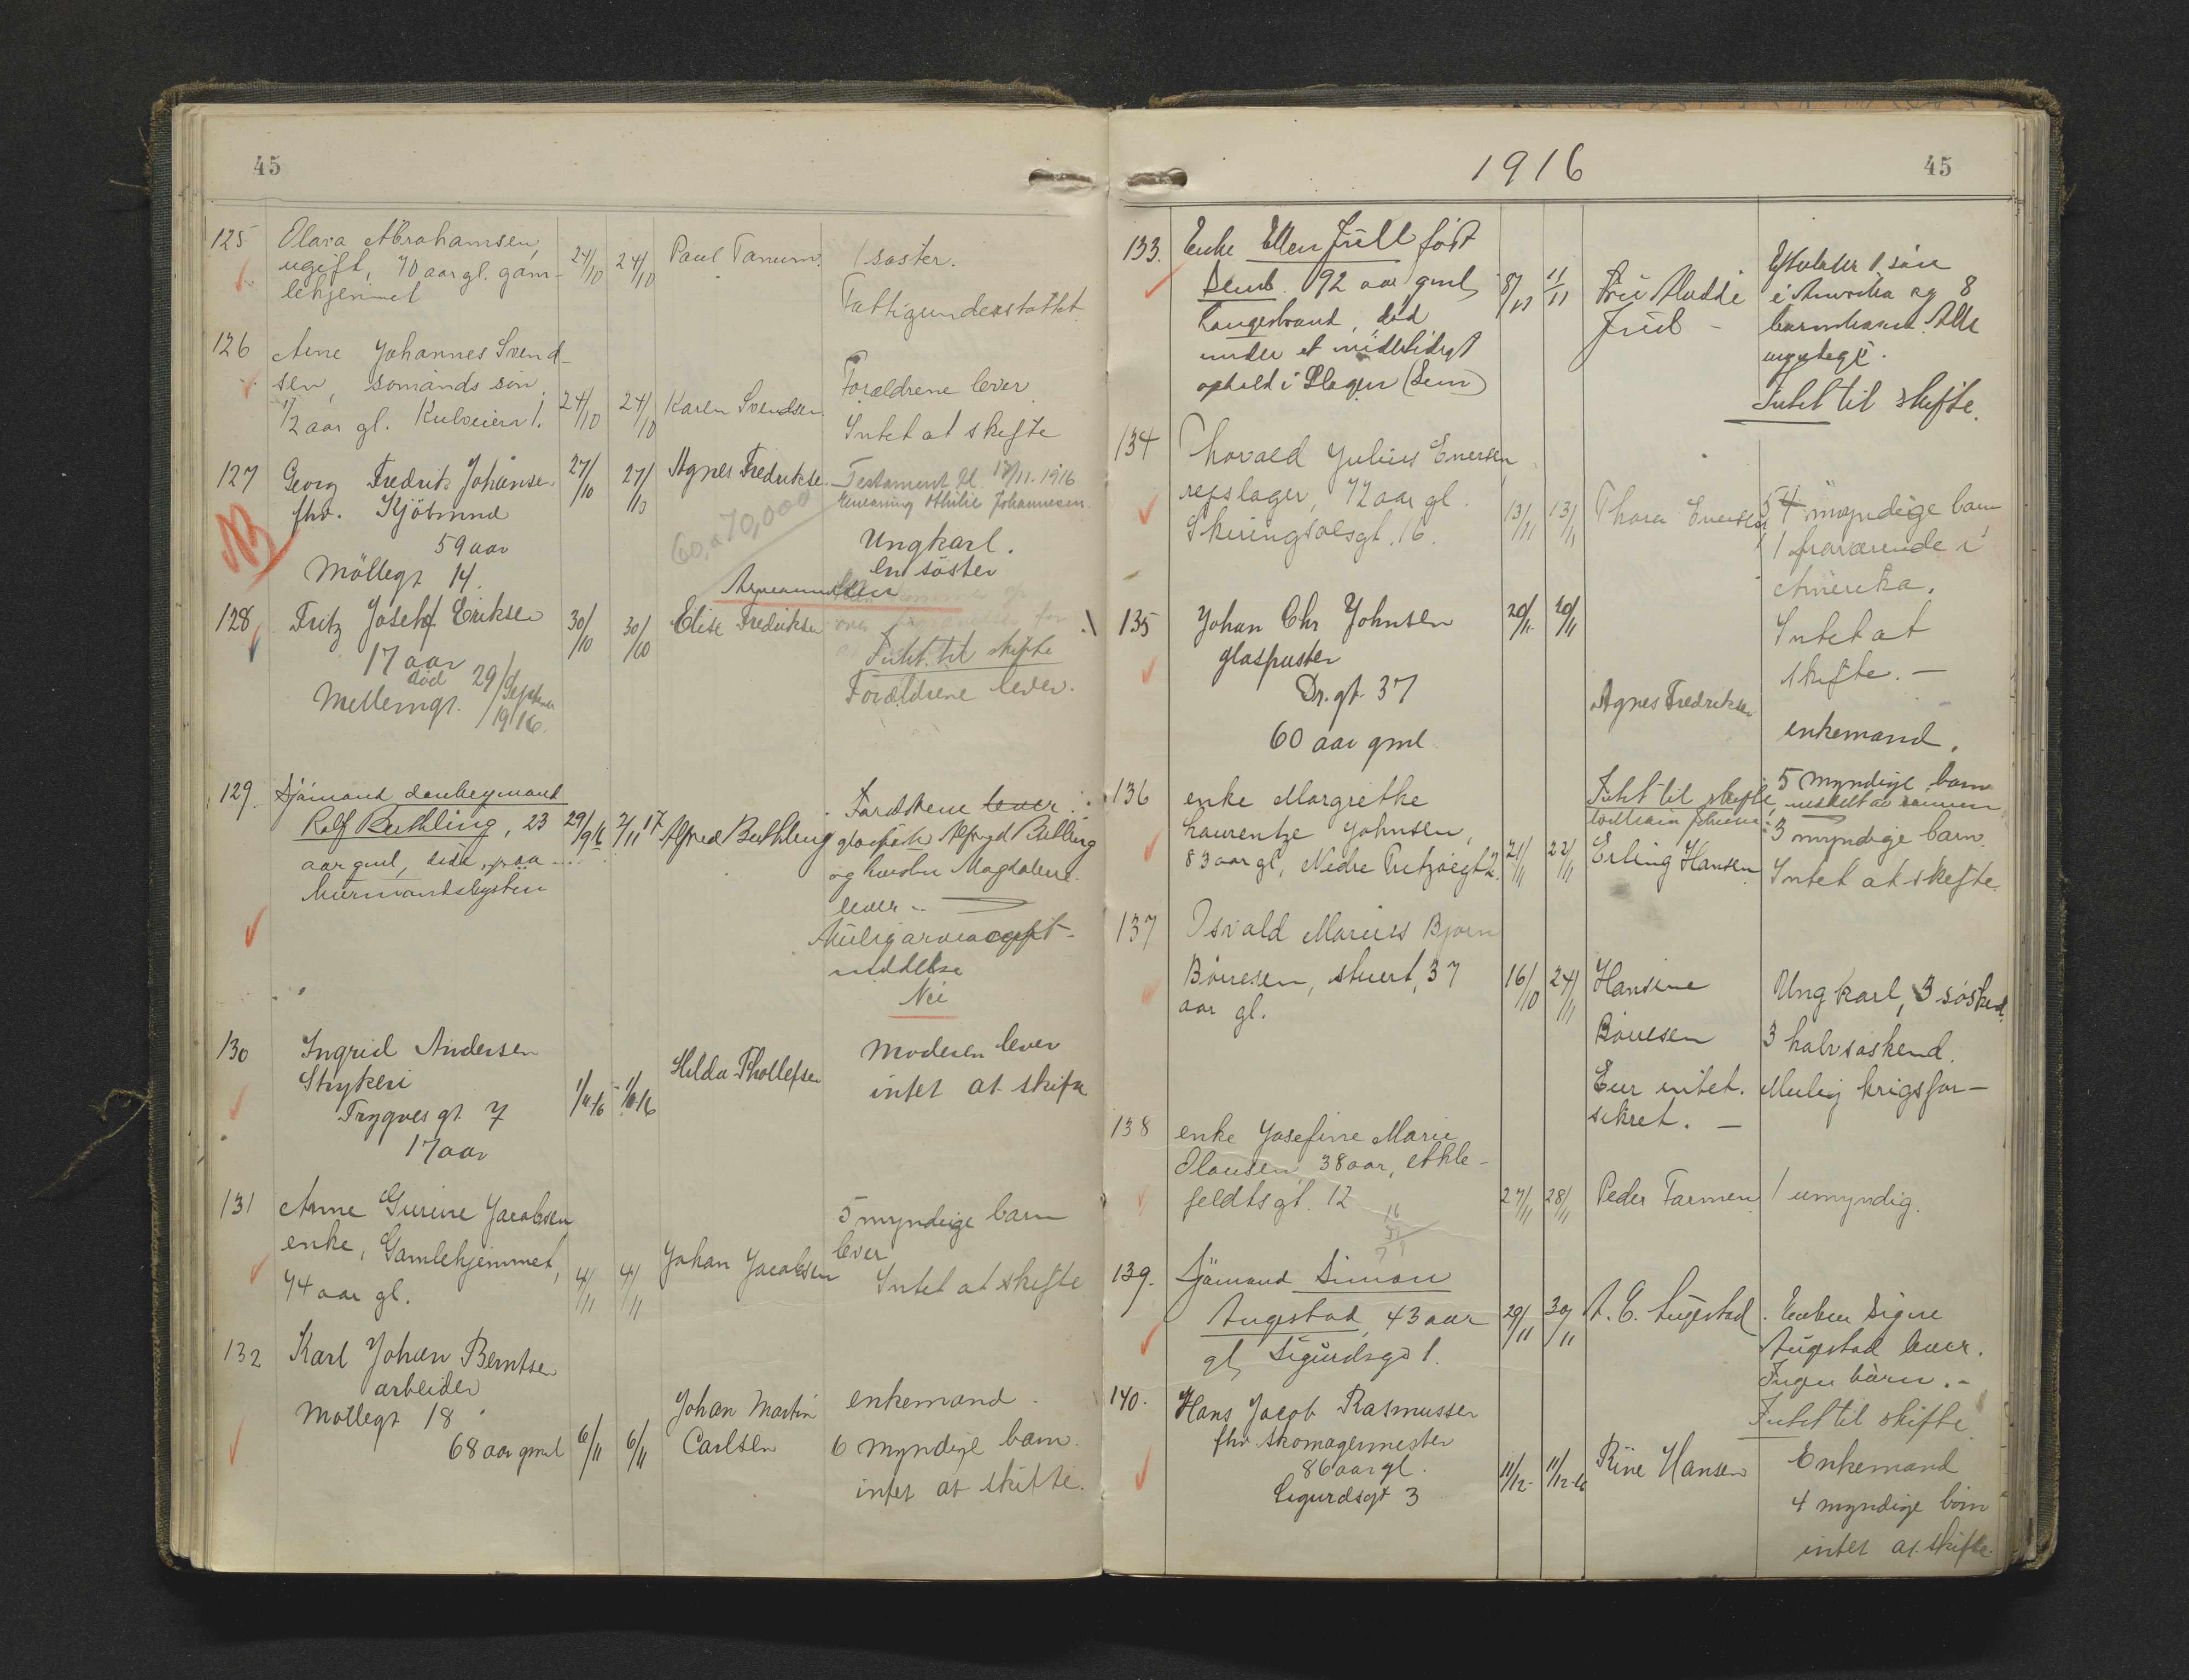 45
125 Olava Abrahamsen,
ugift, 70 aar gl. gam-
lehjemmet
24/10 24/10 Paul Tanum. 1 søster.
Fattigunderstøttet
126 Arne Johannes Svend-
sen, sømands søn,
1/2 aar gl. Kulveien 1. 24/10 24/10 Karen Svendsen.
Forældrene lever.
Intet at skifte
127 Georg Fredrik Johansen
fhv. Kjöbmnd
59 aar
Möllegt 14.
NB
27/10 27/10 Agnes Fredriksen
60 à 70,000
Testament
Johannesen
Ungkarl.
en söster
128 Fritz Josehf Eriksen
17 aar
död 29/September 1916.
Mellemgt.
30/10 30/10 Elise Fredriksen
Intet til skifte
Forældrene lever.
129. Sjömand
Rolf Buthling, 23
aar gml, död paa
29/9 16 2/11 17 Alfred Buthling
lever
og hustru Magdalene
lever
Nei
130 Ingrid Andersen
Strykeri
Trygves gt 7
17 aar
1/11-16 1/11-16 Hilda Thollefsen
Moderen lever
intet at skifte
131 Anne Gurine Jacobsen
enke, Gamlehjemmet,
74 aar gl.
4/11 4/11 Johan Jacobsen
5 myndige barn
lever
Intet at skifte
132 Karl Johan Berntsen
arbeider
Möllegt 18
68 aar gmel
6/11 6/11 Johan Martin
Carlsen
enkemand.
6 myndige barn.
intet at skifte.
1916
45
133. Enke Ellen Juell født
92 aar gml,
død
under et midlertidigt
ophold i Slagen (Sem)
8/11 11/11
Juel
1 søn
i Amerika og 8
barnebarn. Alle
myndige.
Intet til skifte.
134 Thorvald Julius Evensen
repslager, 72 aar gl.
Skiringsalsgt. 16.
13/11 13/11 Thora Evensen
5 4 myndige barn
1 fraværende i
Amerika.
Intet at
skifte. —
135 Johan Chr Johnsen
glaspuster
Dr. gt. 37
60 aar gml.
20/11 20/11
Agnes Fredriksen
enkemand.
5 myndige barn
Intet til skifte,
136 enke Margrethe
Laurentze Johnsen,
83 aar gl, Nedre
21/11 22/11 Erling Hansen
3 myndige barn.
Intet at skifte.
137 Osvald Marius Bjørn
Bøvesen, stuert, 37
aar gl.
16/10 24/11 Hansine
Bøvesen
Eier intet.
Ungkarl, 3 søsken.
3 halvsøskend.
Mulig krigsfor-
sikret. —
138 enke Josefine Marie
Olausen 38 aar,
feldtsgt. 12
27/11 28/11 Peder Farmen 1 umyndig.
139. Sjömand Simon
Augestad, 43 aar
gl, Sigurdsgd 1.
29/11 30/11 A. C. Augestad.
Enken Signe
Augestad lever.
Ingen börn. -
Intet til skifte
140. Hans Jacob Rasmussen
fhv. skomagermester
86 aar gl.
Sigurdsgt 3
11/12- 11/12-16 Rine Hansen
Enkemand
4 myndige börn
intet at skifte.